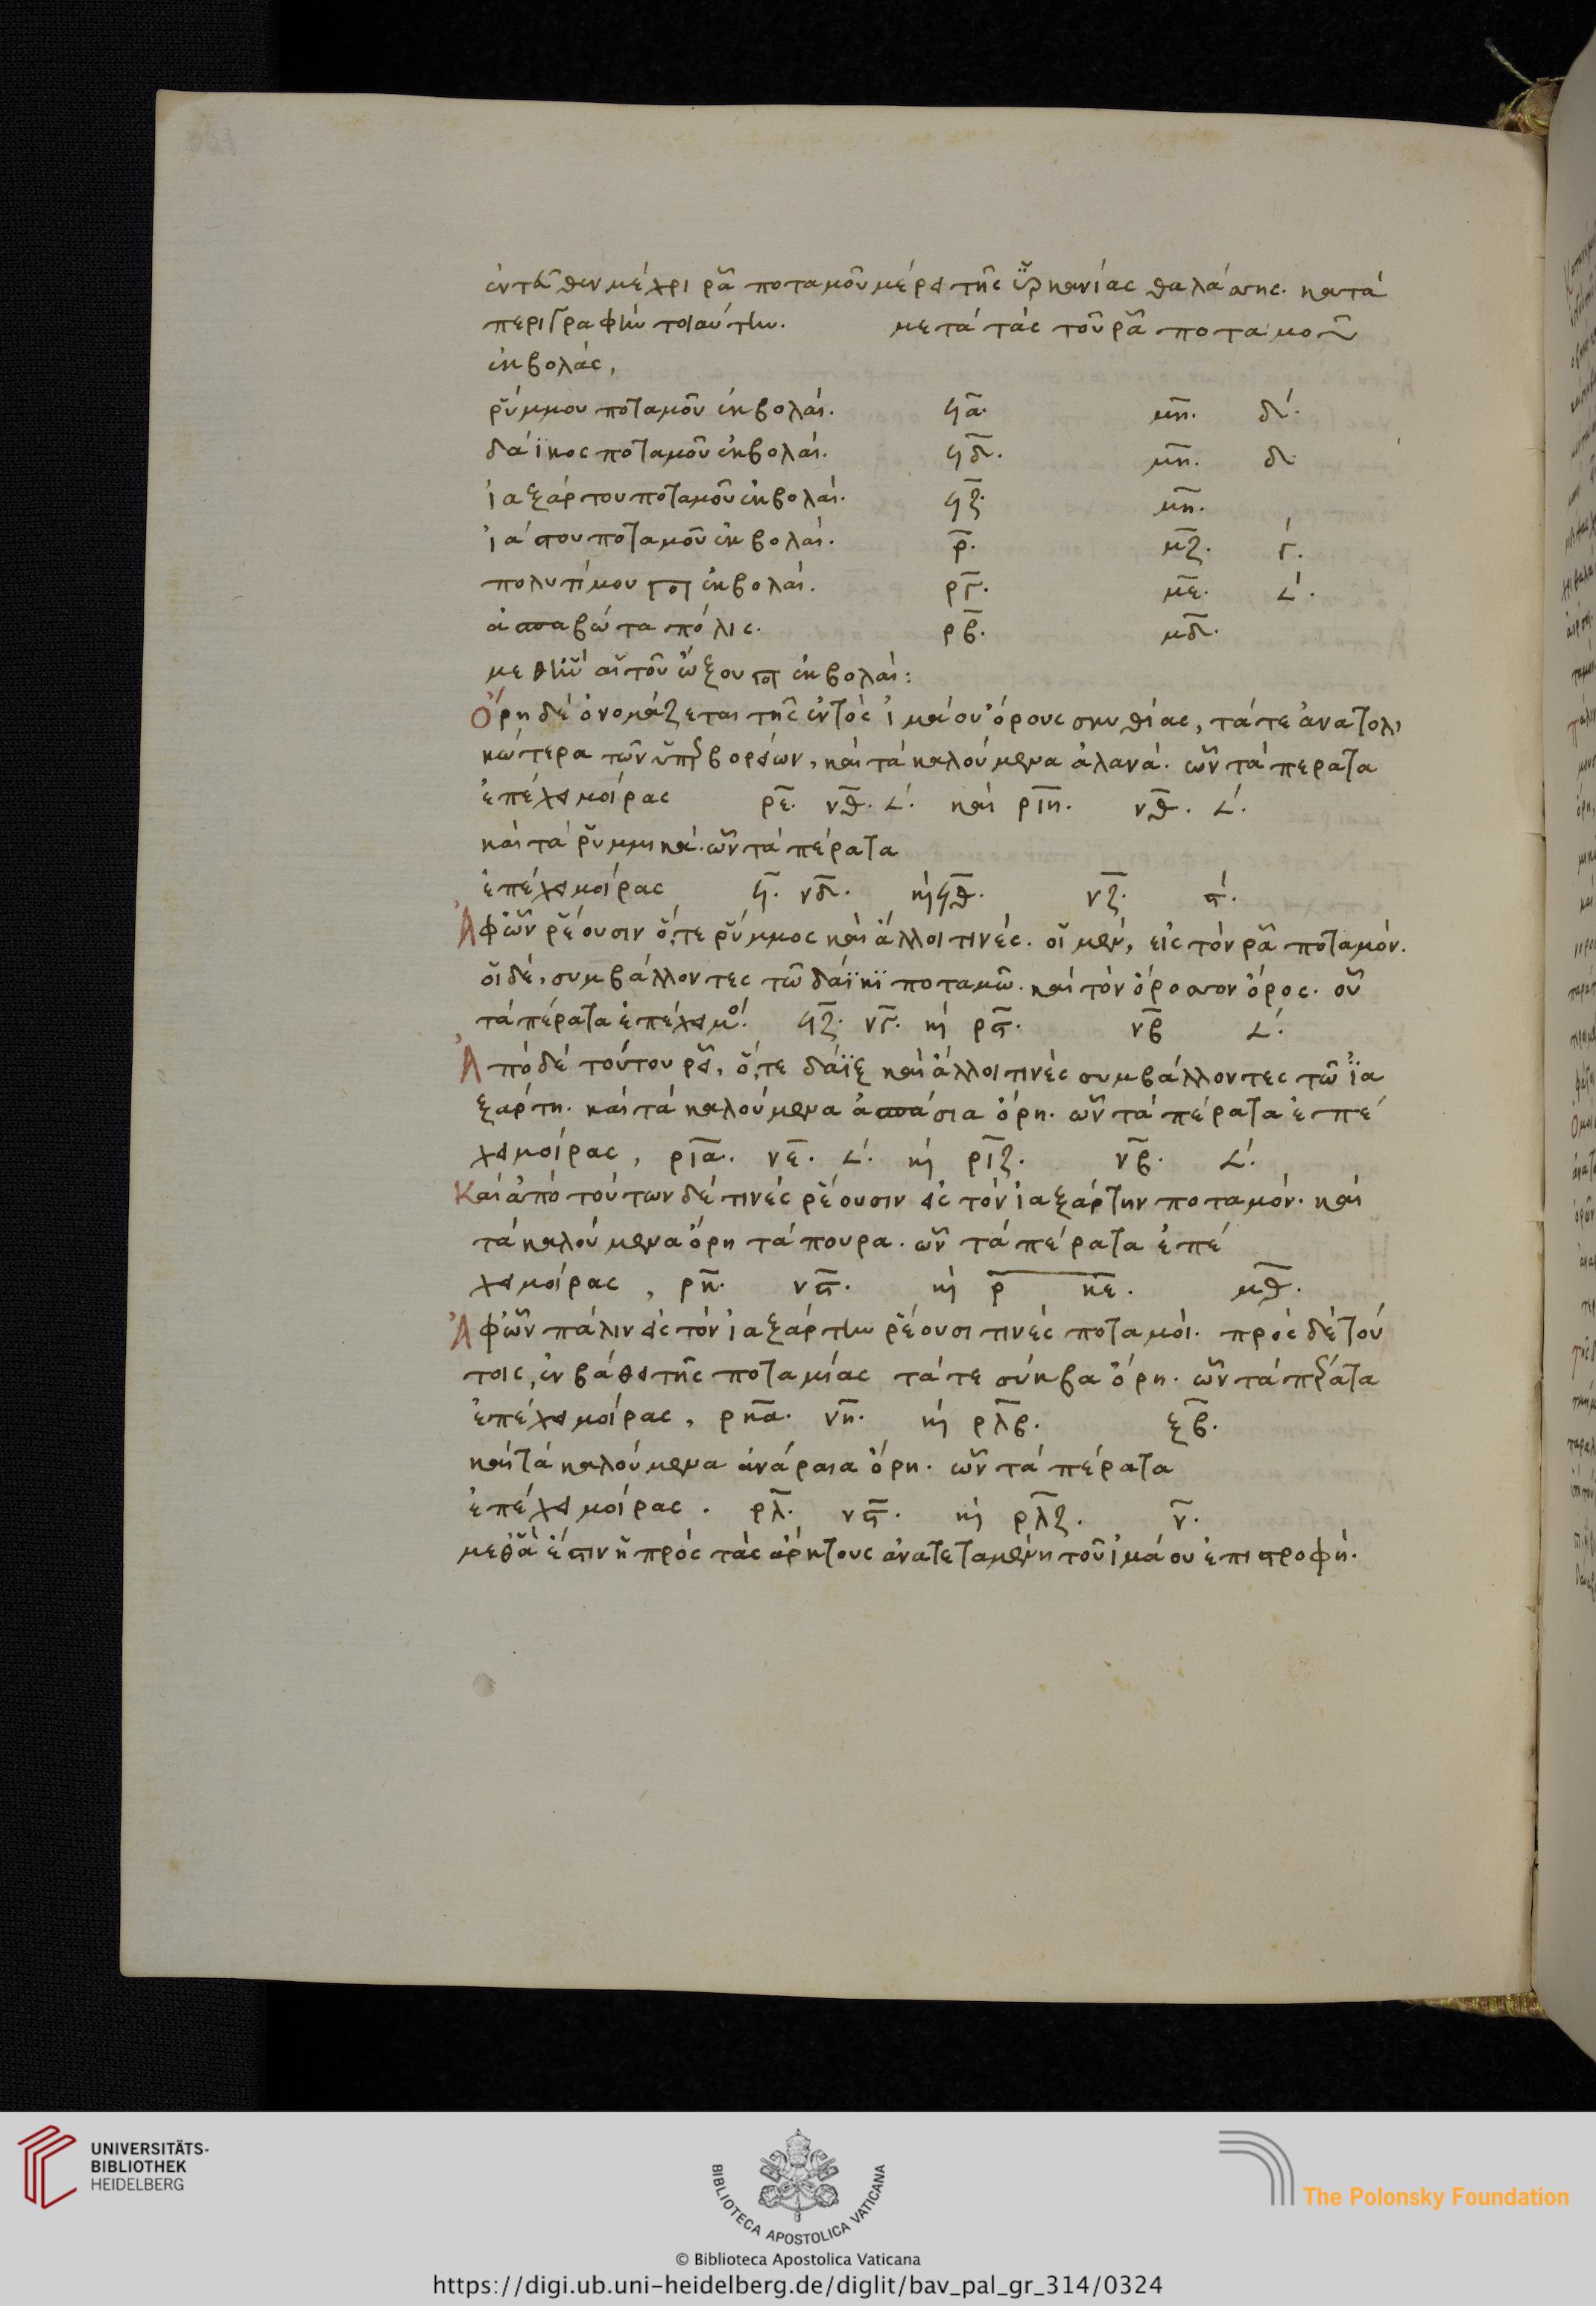 ἐντεῦθεν μέχρι ῥᾶ ποταμοῦ μέρει τῆς ὑρκανίας θαλάσσης. κατὰ
περιγραφὴν τοιαύτην. μετὰ τὰς τοῦ ῥᾶ ποταμοῦ
ἐκβολὰς,
ῥύμμου ποταμοῦ ἐκβολαί. ϟα. μη. δ´.
δάϊκος ποταμοῦ ἐκβολαί. ϟδ. μη. δ
ἰαξάρτου ποταμοῦ ἐκβολαί. ϟζ. μη.
ἰάστου ποταμοῦ ἐκβολαί. ρ. μζ. γ´.
πολυτίμου ποτ ἐκβολαί. ργ. με. ∠´.
ἀσπαβώτα πόλις. ρβ. μδ.
μεθ' ἣν αἱ τοῦ ὤξου ποτ ἐκβολαί:
Ὄρη δὲ ὀνομάζεται τῆς ἐντὸς ἰμάου ὄρους σκυθίας, τά τε ἀνατολι
κώτερα τῶν ὑπερβορείων, καὶ τὰ καλούμενα ἀλανά. ὧν τὰ πέρατα
ἐπέχει μοίρας ρε. νθ. ∠´. καὶ ριη. νθ. ∠´.
καὶ τὰ ῥυμμικά. ὧν τὰ πέρατα
ἐπέχει μοίρας ϟ. νδ. κὶ ϟθ. νζ. ϛ´.
Ἀφ' ὧν ῥέουσιν ὅ, τε ῥύμμος καὶ ἄλλοι τινές. οἱ μὲν, εἰς τὸν ῥᾶ ποταμόν.
οἱ δὲ, συμβάλλοντες τῶ δάϊκϊ ποταμῶ. καὶ τὸν ὄροσσον ὄρος. οὗ
τὰ πέρατα ἐπέχει μο´. ϟζ. νγ. κὶ ρϛ. νβ ∠´.
Ἀπὸ δὲ τούτου ῥεῖ, ὅ, τε δάϊξ καὶ ἄλλοι τινὲς συμβάλλοντες τῶ ἰα
ξάρτη. καὶ τὰ καλούμενα ἀσπάσια ὄρη. ὧν τὰ πέρατα ἐπέ
χει μοίρας, ρια. νε. ∠´. κὶ ριζ. νβ. ∠´.
Καὶ ἀπὸ τούτων δὲ τινὲς ῥέουσιν εἰς τὸν ἰαξάρτην ποταμόν. καὶ
τὰ καλούμενα ὄρη τάπουρα. ὧν τὰ πέρατα ἐπέ
χει μοίρας, ρκ. νϛ. κὶ ρ κε. μθ.
Ἀφ' ὧν πάλιν εἰς τὸν ἰαξάρτην ῥέουσι τινὲς ποταμοί. πρὸς δὲ τού
τοις, ἐν βάθει τῆς ποταμίας τά τε σύηβα ὄρη. ὧν τὰ πέρατα
ἐπέχει μοίρας, ρκα. νη. κὶ ρλβ. ξβ.
καὶ τὰ καλούμενα ἀνάραια ὄρη. ὧν τὰ πέρατα
ἐπέχει μοίρας. ρλ. νϛ. κὶ ρλζ. ν.
μεθ' ἅ ἐστιν ἡ πρὸς τὰς ἄρκτους ἀνατεταμένη τοῦ ἰμάου ἐπιστροφή.
UNIVERSITÄTS-
BIBLIOTHEK
HEIDELBERG
BIBLIOTECA APOSTOLICA VATICANA
The Polonsky Foundation
© Biblioteca Apostolica Vaticana
https://digi.ub.uni-heidelberg.de/diglit/bav_pal_gr_314/0324